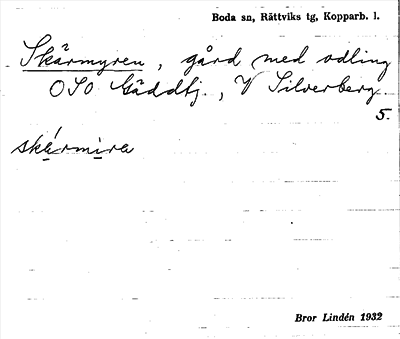 Boda sn, Rättviks tg, Kopparb. l.
Skärmyren, gård med odling
OSO Gäddtj., V Silverberg.
5.
skármira
Bror Lindén 1932